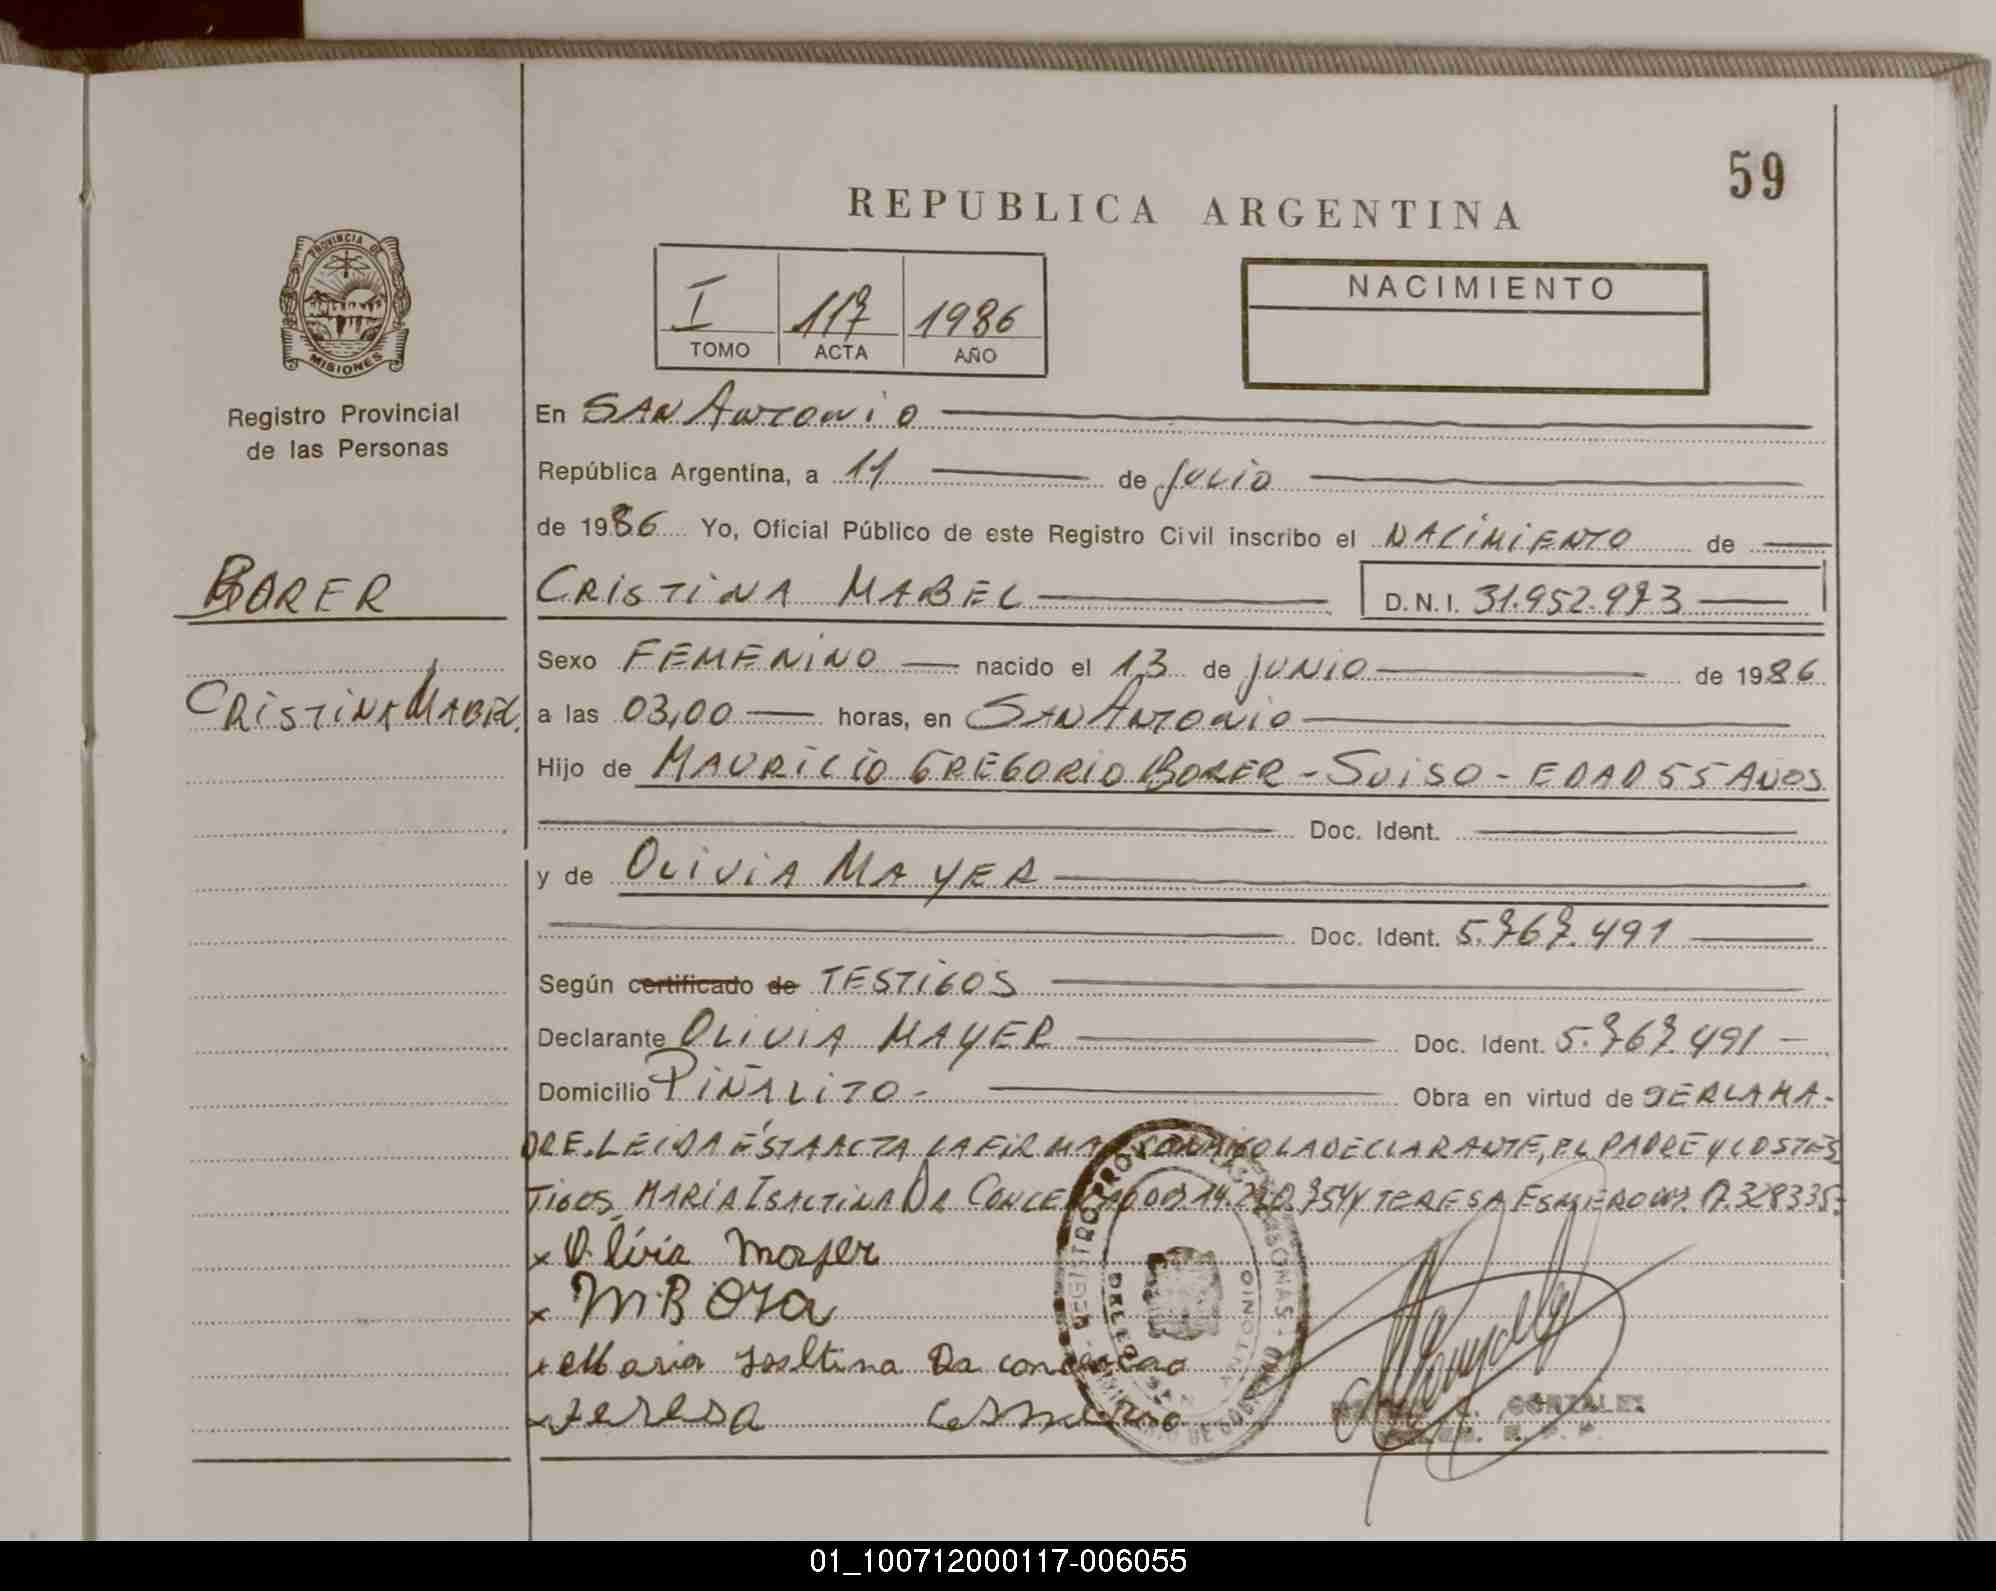 59
REPUBLICA ARGENTINA
PROVINCIA DE
MISIONES
Registro Provincial
de las Personas
I 117 1986
TOMO ACTA AÑO
NACIMIENTO
En SAN ANTONIO
República Argentina, a 11 de JULIO
de 1986 Yo, Oficial Público de este Registro Civil inscribo el NACIMIENTO de
BORER
CRISTINA MABEL D.N.I. 31.952.973
Sexo FEMENINO nacido el 13 de JUNIO de 1986
CRISTINA MABEL.
a las 03,00 horas, en SAN ANTONIO
Hijo de MAURICIO GREGORIO BORER - SUISO - EDAD 55 AÑOS
Doc. Ident.
y de OLIVIA MAYER
Doc. Ident. 5.767.491
Según certificado de TESTIGOS
Declarante OLIVIA MAYER Doc. Ident. 5.767.491
Domicilio PIÑALITO - Obra en virtud de SER LA MA-
DRE. LEIDA ÉSTA ACTA LA FIRMAN CONMIGO LA DECLARANTE, EL PADRE Y LOS TES
TIGOS MARIA ISALTINA DA CONCE 754 Y TERESA ESMERO 17.328335-
x Olivia mayer
x M. B
x Maria Isaltina Da conceicao
x teresa esmero
REGISTRO PROVINCIAL DE LAS PERSONAS
MINISTERIO DE GOBIERNO
SAN ANTONIO
GONZALEZ
01_100712000117-006055